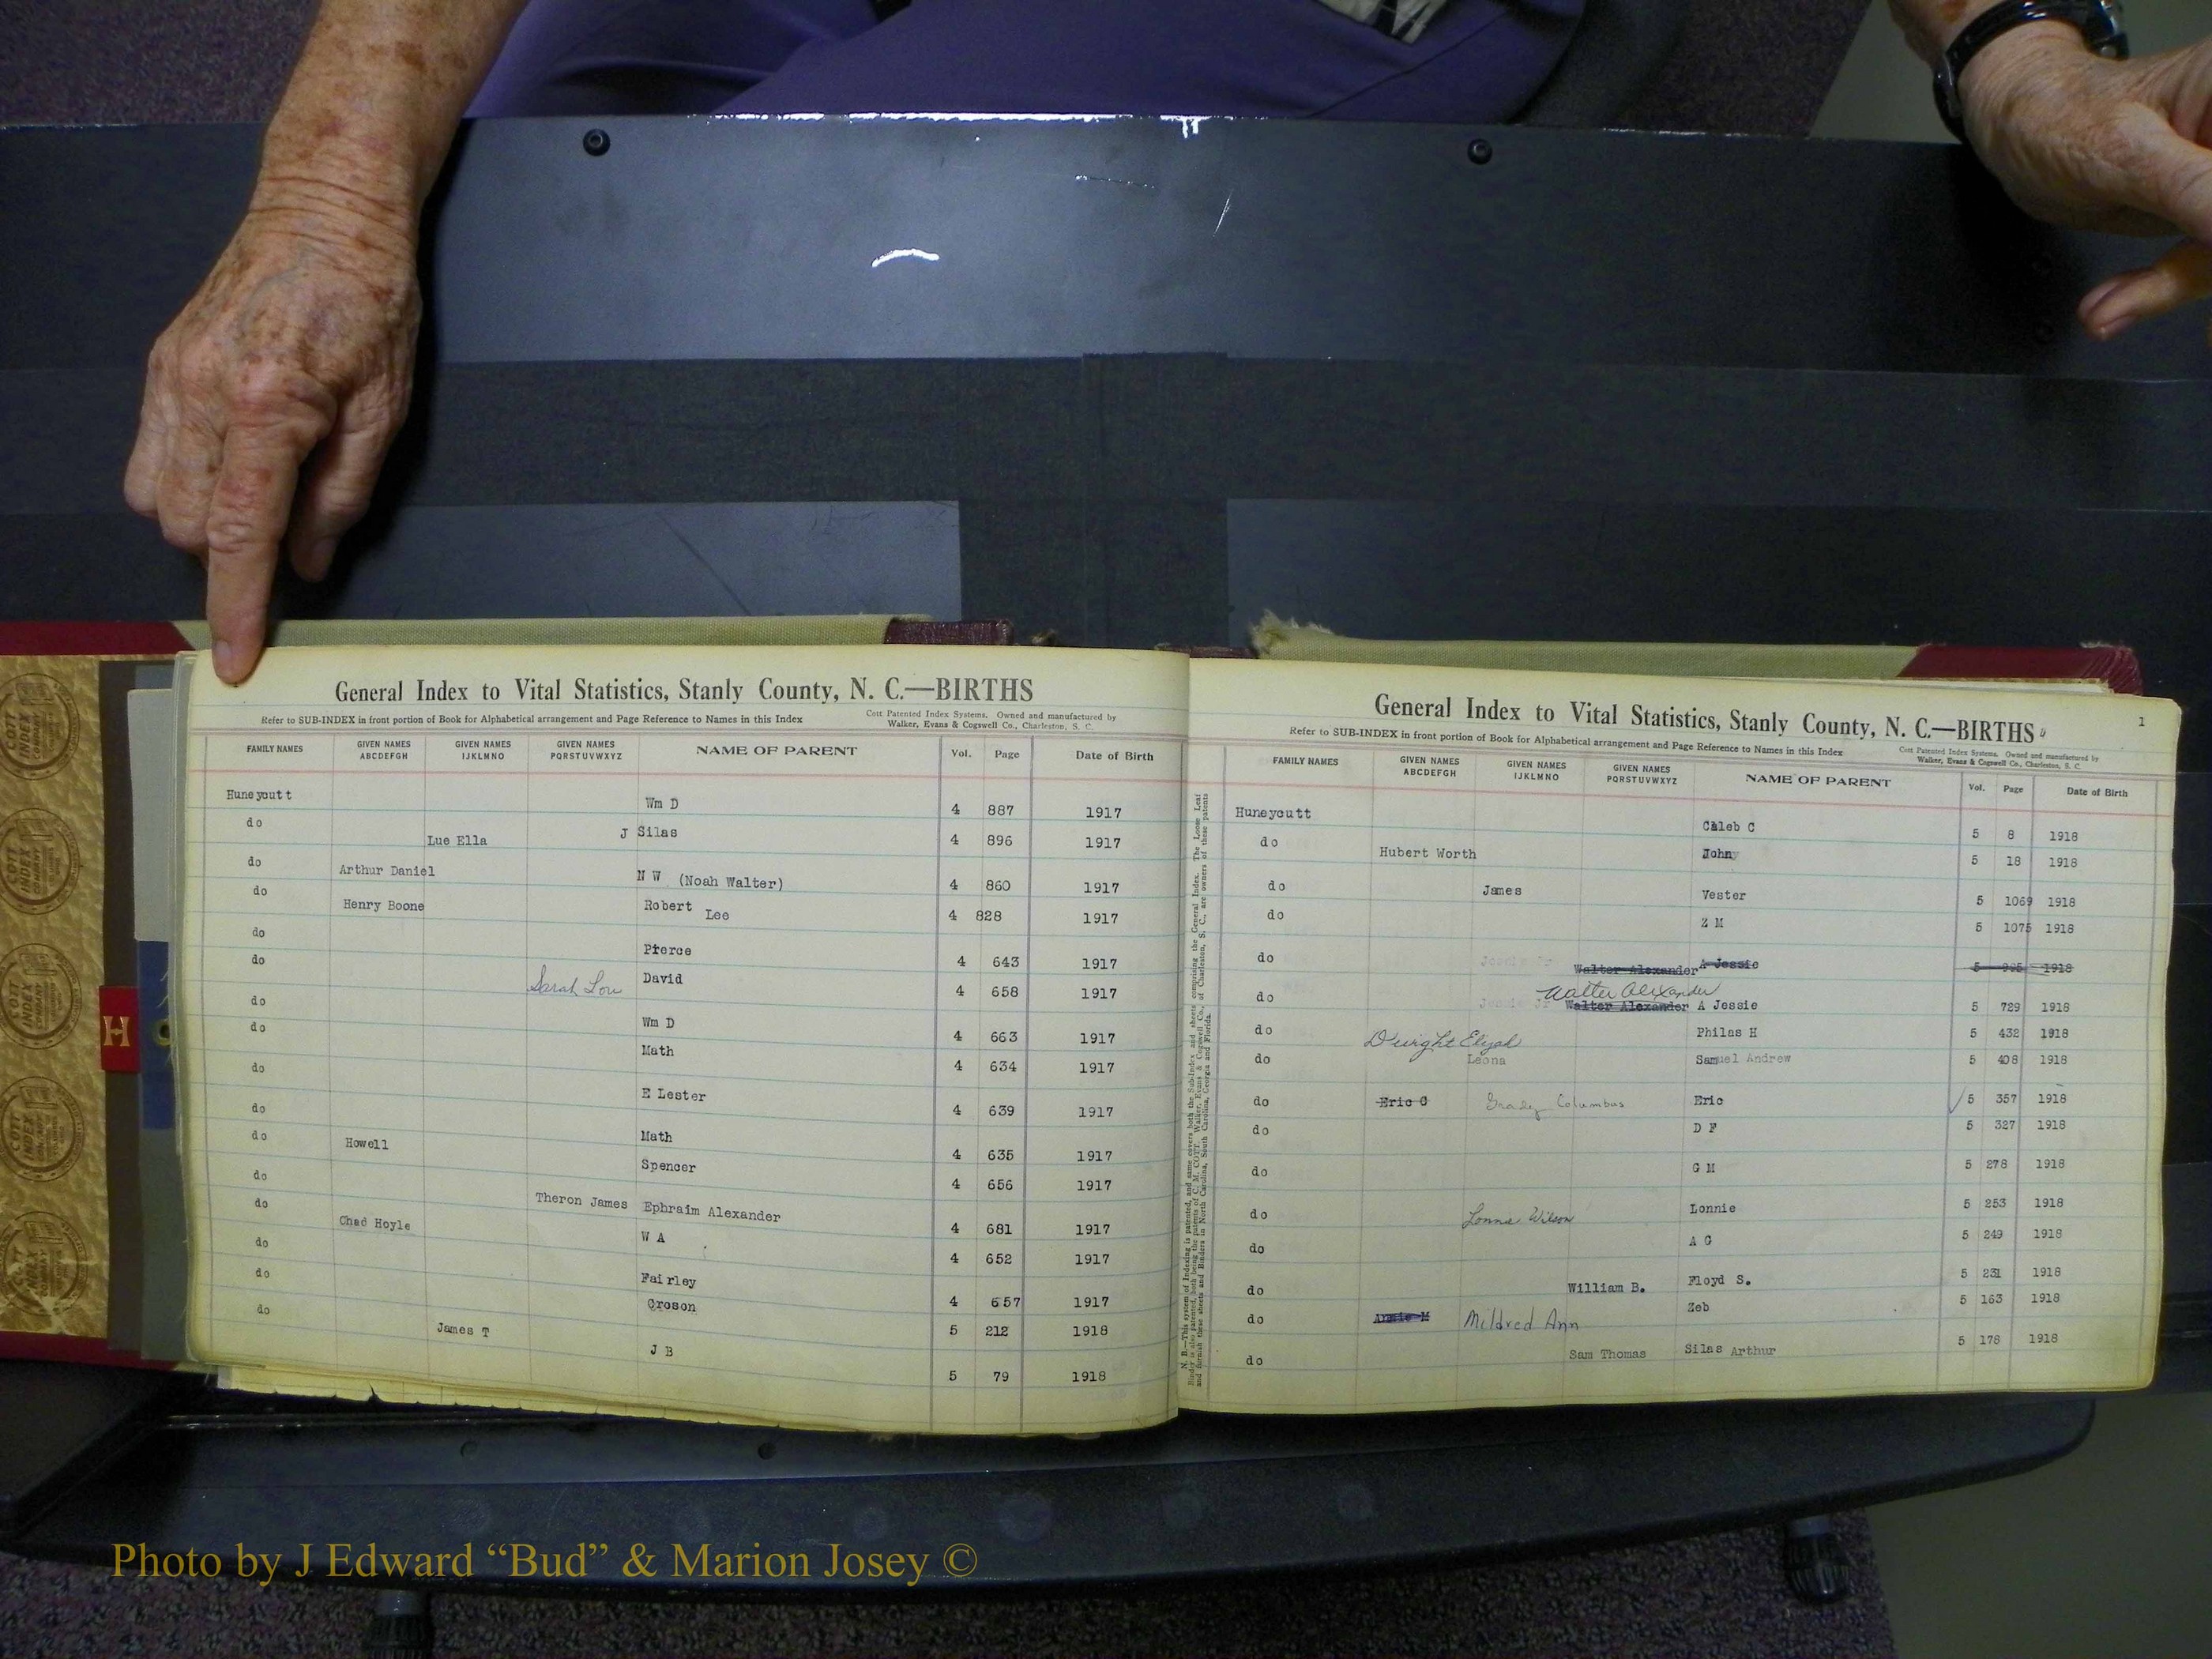 General Index to Vital Statistics, Stanly County, N. C.—BIRTHS
Refer to SUB-INDEX in front portion of Book for Alphabetical arrangement and Page Reference to Names in this Index
Cott Patented Index Systems. Owned and manufactured by
Walker, Evans & Cogswell Co., Charleston, S. C.
FAMILY NAMES GIVEN NAMES ABCDEFGH GIVEN NAMES IJKLMNO GIVEN NAMES PQRSTUVWXYZ NAME OF PARENT Vol. Page Date of Birth
Huneycutt Wm D 4 887 1917
do Lue Ella J Silas 4 896 1917
do Arthur Daniel N W (Noah Walter) 4 860 1917
do Henry Boone Robert Lee 4 828 1917
do Pierce 4 643 1917
do Sarah Lou David 4 658 1917
do Wm D 4 663 1917
do Math 4 634 1917
do E Lester 4 639 1917
do Math 4 635 1917
do Howell Spencer 4 656 1917
do Theron James Ephraim Alexander 4 681 1917
do Chad Hoyle W A 4 652 1917
do Fairley 4 657 1917
do Croson 5 212 1918
do James T J B 5 79 1918
General Index to Vital Statistics, Stanly County, N. C.—BIRTHS
1
Refer to SUB-INDEX in front portion of Book for Alphabetical arrangement and Page Reference to Names in this Index
Cott Patented Index Systems. Owned and manufactured by
Walker, Evans & Cogswell Co., Charleston, S. C.
FAMILY NAMES GIVEN NAMES ABCDEFGH GIVEN NAMES IJKLMNO GIVEN NAMES PQRSTUVWXYZ NAME OF PARENT Vol. Page Date of Birth
Huneycutt Caleb C 5 8 1918
do Hubert Worth John 5 18 1918
do James Vester 5 1069 1918
do Z M 5 1075 1918
do Walter Alexander A Jessie 5 1918
Walter Alexander
do Walter Alexander A Jessie 5 729 1918
do Dwight Elijah Philas H 5 432 1918
do Leona Samuel Andrew 5 408 1918
do Eric C Grady Columbus Eric 5 357 1918
do D F 5 327 1918
do G M 5 278 1918
do Lonnie Wilson Lonnie 5 253 1918
do A G 5 249 1918
do William B. Floyd S. 5 231 1918
do Annie M Mildred Ann Zeb 5 163 1918
do Sam Thomas Silas Arthur 5 178 1918
COTT INDEX COMPANY
H
Photo by J Edward “Bud” & Marion Josey ©